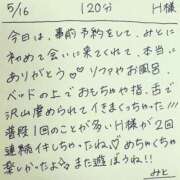 5/16 120分 H様
今日は、事前予約をして、みとに
初めて会いに来てくれて、本当に
ありがとう♡♡ ソファやお風呂、
ベッドの上でおもちゃや指、舌で
沢山虐められてイきまくっちゃった!!!
普段1回のことが多いH様が2回
連続イキしちゃったね♡ めちゃくちゃ
楽しかったよ☆ また遊ぼうね!!
みと